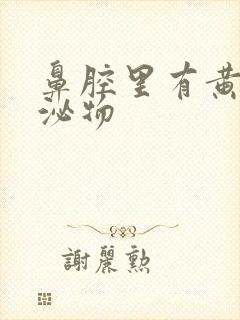 鼻腔里有黄
泌物
謝麗勲